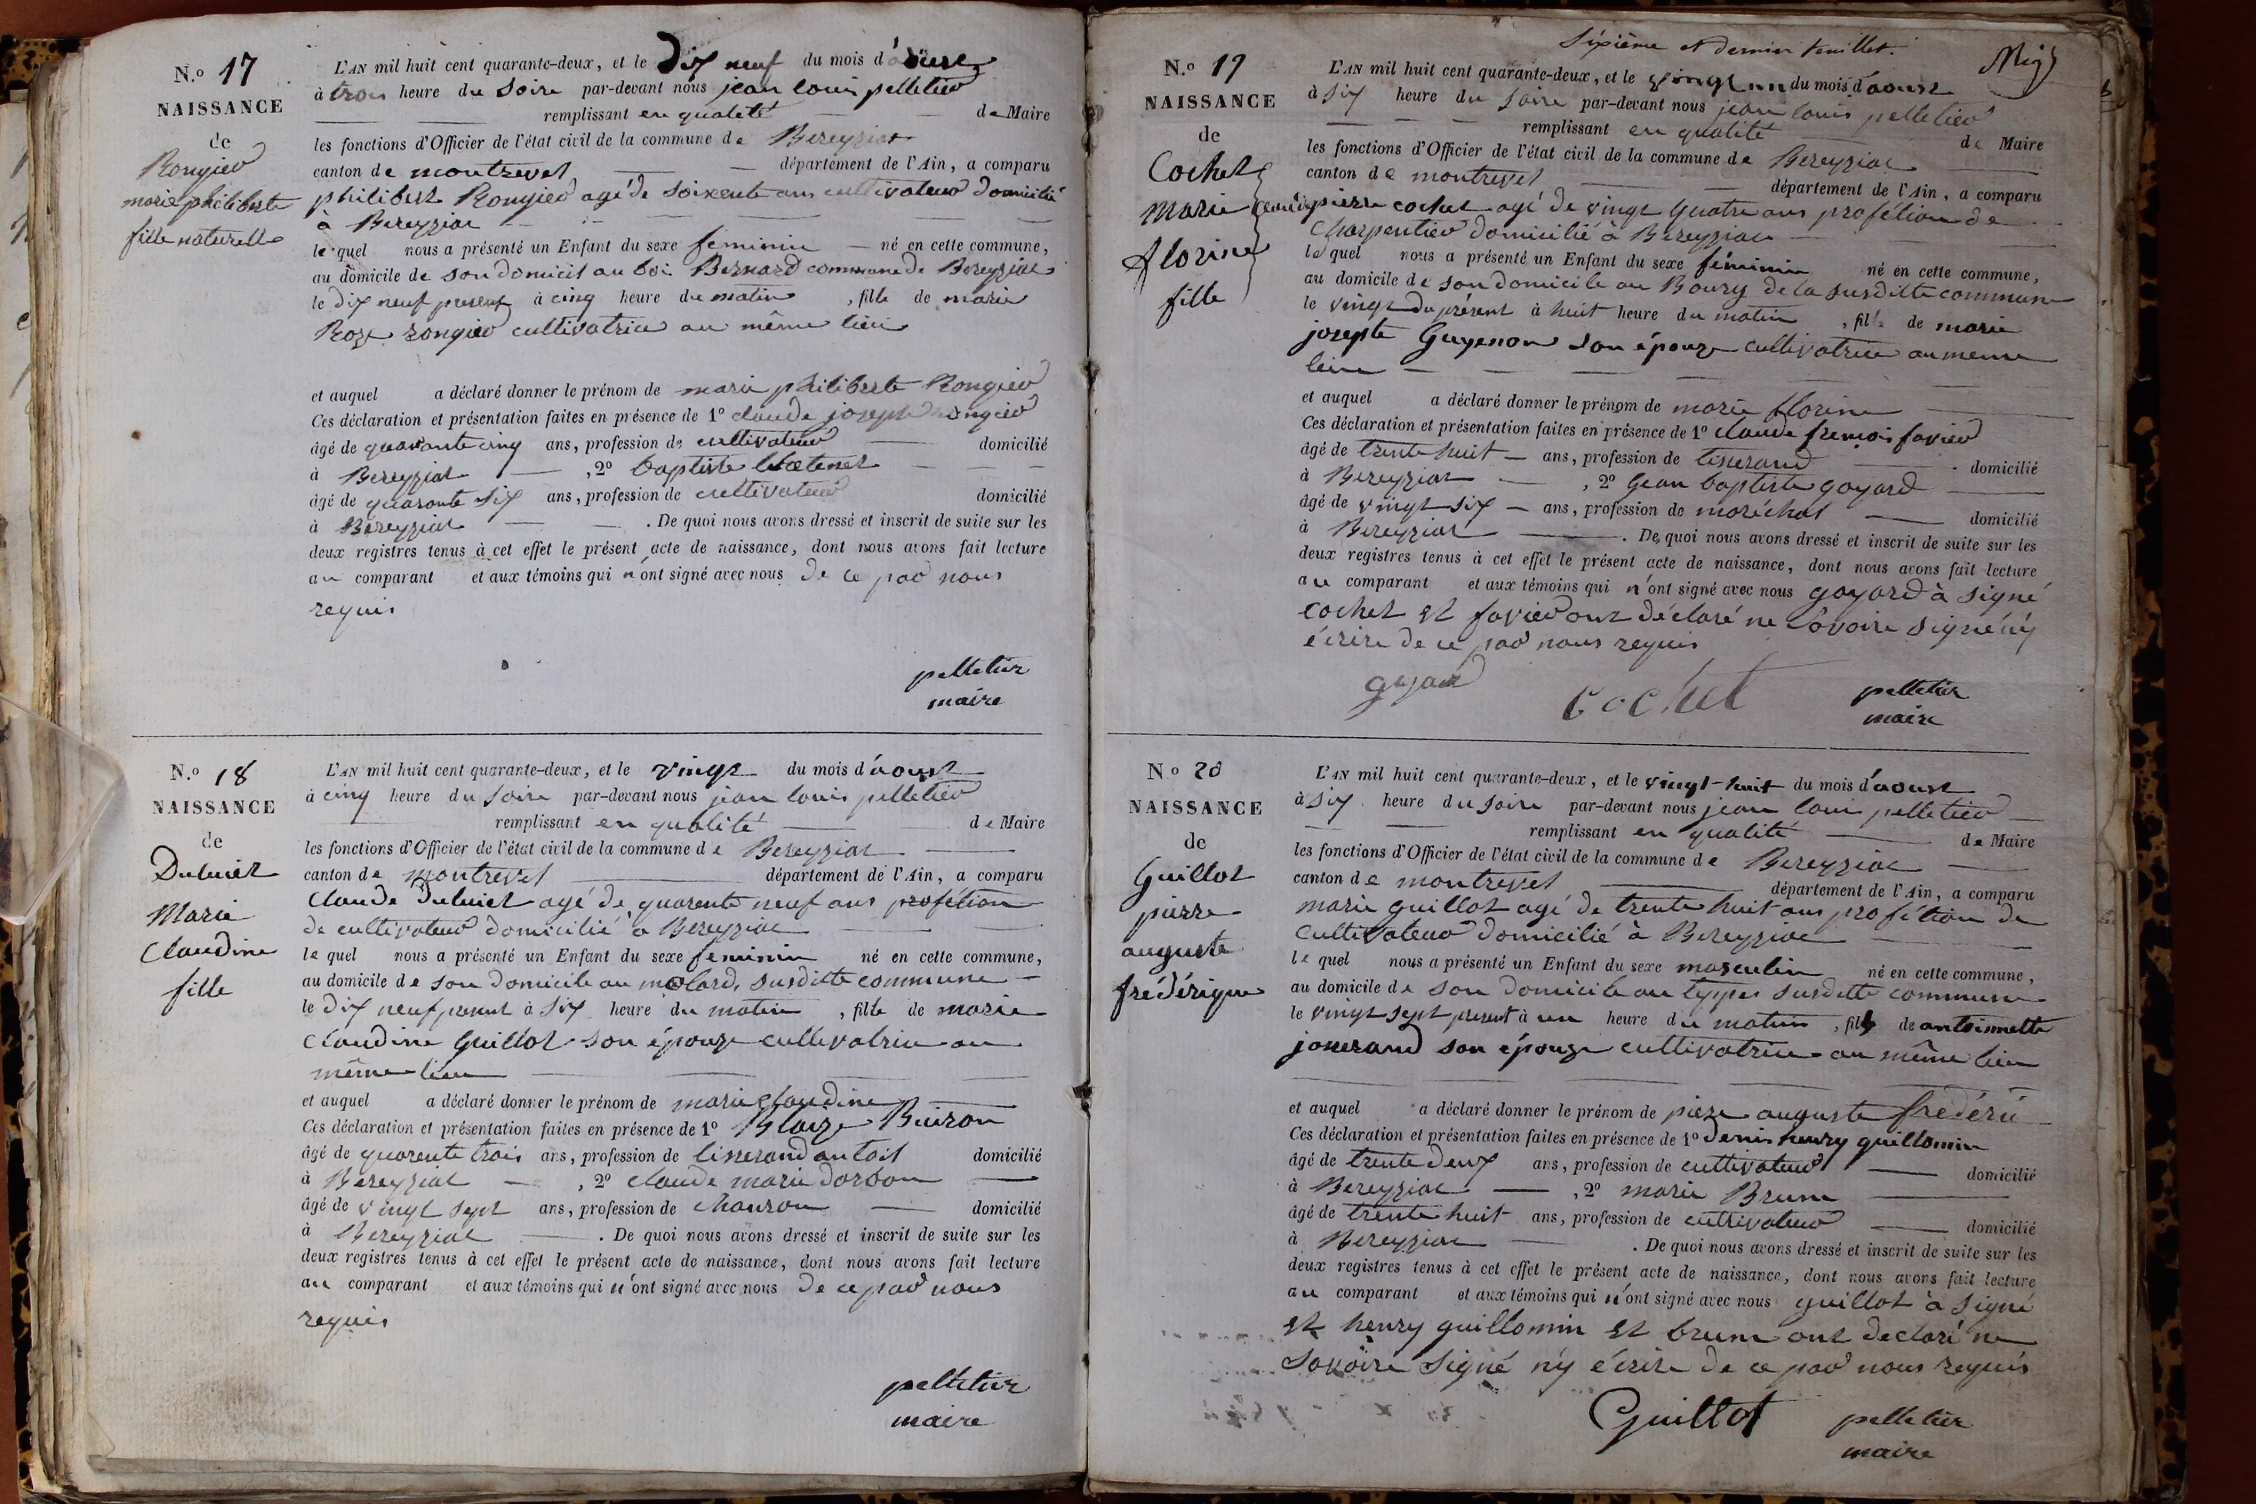 N.o 17
NAISSANCE
de
Rongier
marie philiberte
fille naturelle
L'AN mil huit cent quarante-deux, et le Dix neuf du mois d'aoust
à trois heure du soire par-devant nous jean louis pelletier
remplissant en qualité de Maire
les fonctions d'Officier de l'état civil de la commune de Bereyziat
canton de montrevel département de l'Ain, a comparu
philibert Rongier agé de soixente ans cultivateur domicilié
à Bereyziat
le quel nous a présenté un Enfant du sexe feminin né en cette commune,
au domicile de son domicil au boi Bernard commune de Bereyziat
le dix neuf present à cinq heure du matin, fille de marie
Roze rongier cultivatrice au même lieu
et auquel a déclaré donner le prénom de marie philiberte Rongier
Ces déclaration et présentation faites en présence de 1o claude joseph rongier
âgé de quarante cinq ans, profession de cultivateur domicilié
à Bereyziat, 2o baptiste
âgé de quarante six ans, profession de cultivateur domicilié
à Bereyziat. De quoi nous avons dressé et inscrit de suite sur les
deux registres tenus à cet effet le présent acte de naissance, dont nous avons fait lecture
au comparant et aux témoins qui n'ont signé avec nous de ce par nous
requis
pelletier
maire
N.o 18
NAISSANCE
de
Dubuiet
Marie
Claudine
fille
L'AN mil huit cent quarante-deux, et le vingt du mois d'aoust
à cinq heure du soire par-devant nous jean louis pelletier
remplissant en qualité de Maire
les fonctions d'Officier de l'état civil de la commune de Bereyziat
canton de montrevel département de l'Ain, a comparu
Claude Dubuiet agé de quarente neuf ans profétion
de cultivateur domicilié à Bereyziat
le quel nous a présenté un Enfant du sexe feminin né en cette commune,
au domicile de son domicile au molard, susditte commune
le dix neuf present à six heure du matin, fille de marie
claudine Guillot son épouze cultivatrice au
même lieu
et auquel a déclaré donner le prénom de marie claudine
Ces déclaration et présentation faites en présence de 1o Blaize Buiron
âgé de quarente trois ans, profession de tisserand au toil domicilié
à Bereyziat, 2o claude marie dorbon
âgé de vingt sept ans, profession de charon domicilié
à Bereyziat. De quoi nous avons dressé et inscrit de suite sur les
deux registres tenus à cet effet le présent acte de naissance, dont nous avons fait lecture
au comparant et aux témoins qui n'ont signé avec nous de ce par nous
requis
pelletier
maire
Sixième et dernier feuillet.
N.o 19
NAISSANCE
de
Cochet
Marie
florine
fille
L'AN mil huit cent quarante-deux, et le vingt un du mois d'aoust
à six heure du soire par-devant nous jean louis pelletier
remplissant en qualité de Maire
les fonctions d'Officier de l'état civil de la commune de Bereyziat
canton de montrevel département de l'Ain, a comparu
pierre cochet agé de vingt quatre ans profétion de
charpentier domicilié à Bereyziat
le quel nous a présenté un Enfant du sexe féminin né en cette commune,
au domicile de son domicile au Bourg de la susditte commune
le vingt du présent à huit heure du matin, fille de marie
josepte Guyenon son épouze cultivatrice au meme
leiu
et auquel a déclaré donner le prénom de marie florine
Ces déclaration et présentation faites en présence de 1o claude frençois favier
âgé de trente huit ans, profession de tisserand domicilié
à Bereyziat, 2o Gean baptiste goyard
âgé de vingt six ans, profession de marichal domicilié
à Bereyziat. De quoi nous avons dressé et inscrit de suite sur les
deux registres tenus à cet effet le présent acte de naissance, dont nous avons fait lecture
au comparant et aux témoins qui n'ont signé avec nous goyard à signé
cochet et favier ont déclaré ne savoire signé ny
écrire de ce par nous requis
goyard
cochet
pelletier
maire
No 20
NAISSANCE
de
Guillot
pierre
auguste
frédérique
L'AN mil huit cent quarante-deux, et le vingt-huit du mois d'aoust
à six heure du soire par-devant nous jean loui pelletier
remplissant en qualité de Maire
les fonctions d'Officier de l'état civil de la commune de Bereyziat
canton de montrevel département de l'Ain, a comparu
marie guillot agé de trente huit ans profétion de
cultivateur domicilié à Bereyziat
le quel nous a présenté un Enfant du sexe masculin né en cette commune,
au domicile de son domicile au teppes susditte commune
le vingt sept present à un heure du matin, fils de antoinette
josserand son épouze cultivatrice au même lieu
et auquel a déclaré donner le prénom de pieze auguste frédéric
Ces déclaration et présentation faites en présence de 1o Denis henry guillomin
âgé de trente deux ans, profession de cultivateur domicilié
à Bereyziat, 2o marie Brum
âgé de trente huit ans, profession de cultivateur domicilié
à Bereyziat. De quoi nous avons dressé et inscrit de suite sur les
deux registres tenus à cet effet le présent acte de naissance, dont nous avons fait lecture
au comparant et aux témoins qui n'ont signé avec nous guillot à signé
et henry guillomin et brum ont declaré ne
savoire signé n'y écrire de ce par nous requis
Guillot
pelletier
maire